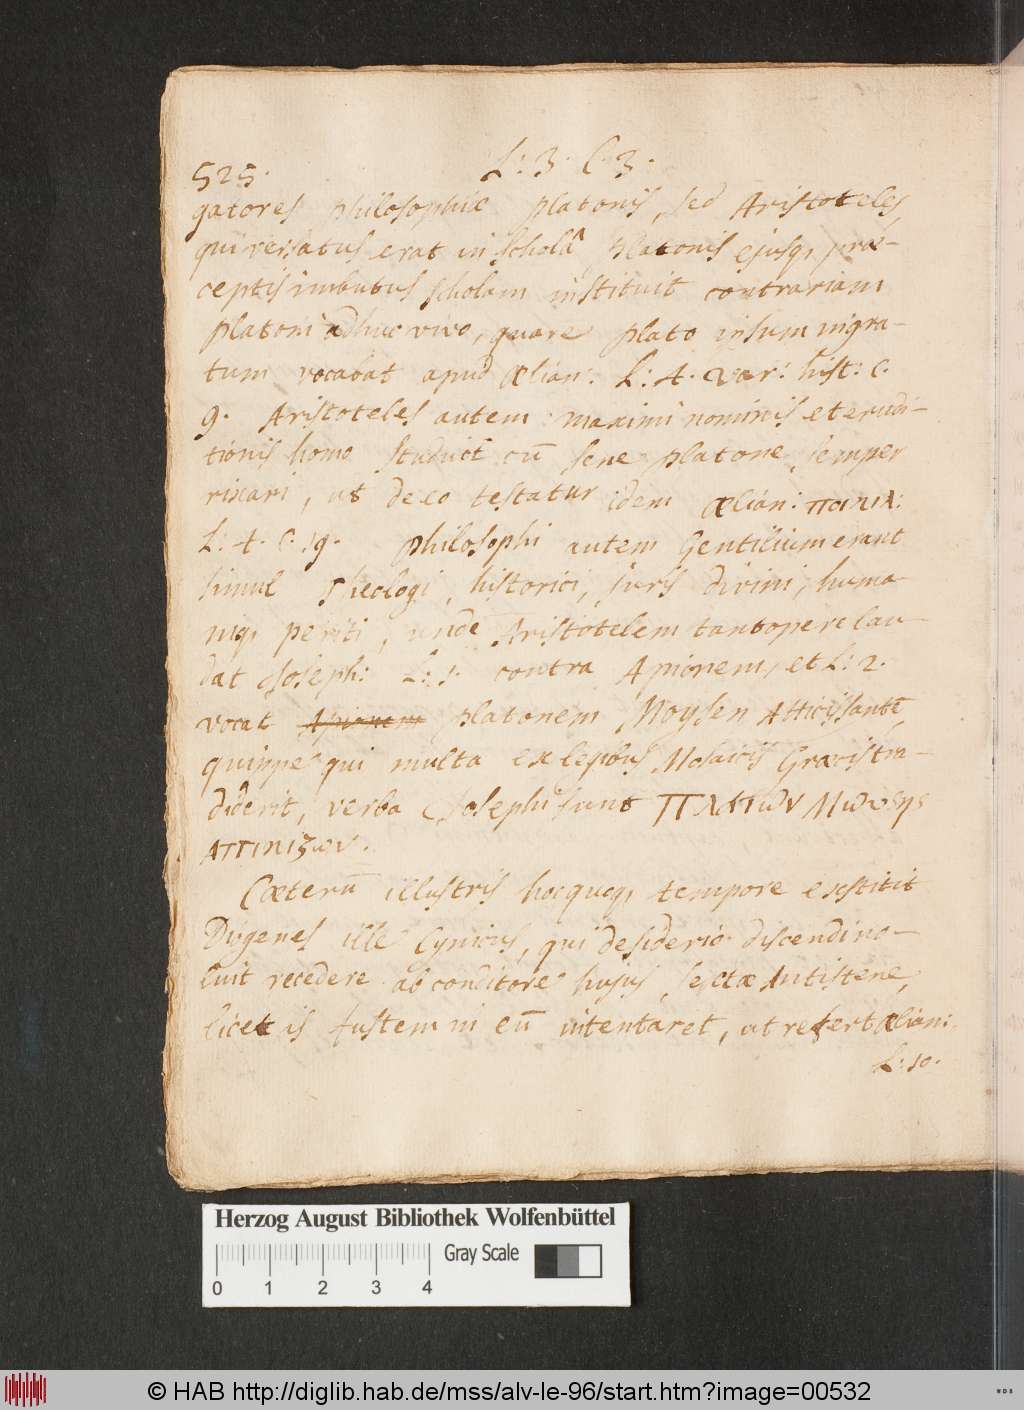 525.
L: 3. C. 3.
gatores philosophiæ platonis, sed Aristoteles,
qui versatus erat in scholâ platonis ejusq, præ-
ceptis imbutus scholam instituit contrariam
platoni adhuc vivo, quare plato ipsum ingra-
tum vocabat apud Ælian: L: 4. var: hist: C.
9. Aristoteles autem maximi nominis et erudi-
tionis homo studuit cū sene platone semper
rixari, ut de eo testatur idem Ælian: ποικιλ:
L: 4. C. 19. Philosophi autem Gentilium erant
simul Theologi, historici, juris divini, huma-
niq, periti, unde Aristotelem tantopere lau-
dat Joseph: L: 1. contra Apionem, et L: 2.
vocat Apionem platonem Moysen Atticissantē,
quippe qui multa ex legibus Mosaicis Græcis tra-
diderit, verba Josephi sunt Πλάτων Μωυσης
αττικιζων.
Cæterū illustris hocquoq, tempore exstitit
Diogenes ille Cynicus, qui desiderio discendi no-
luit recedere ab conditore hujus sectæ Antistene,
licet is fustem in eū intentaret, ut refert Ælian:
L: 10.
Herzog August Bibliothek Wolfenbüttel
Gray Scale
0 1 2 3 4
© HAB http://diglib.hab.de/mss/alv-le-96/start.htm?image=00532